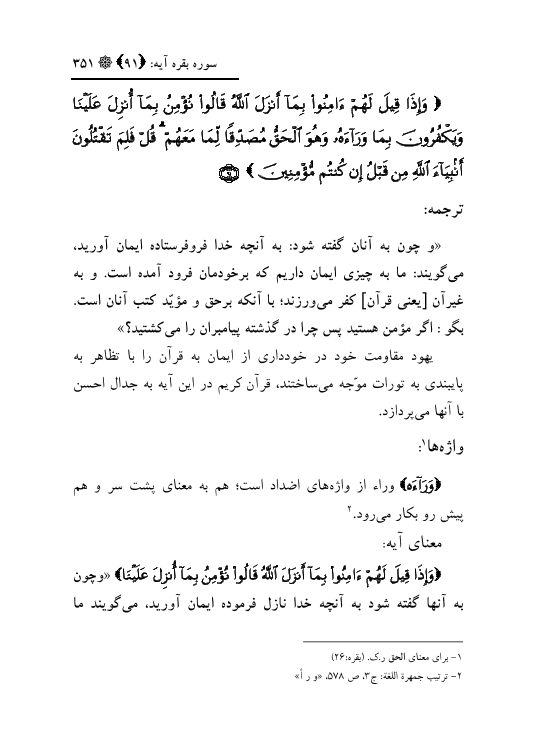 سوره بقره آیه: ﴿۹۱﴾ ۳۵۱
﴿ وَإِذَا قِيلَ لَهُمْ ءَامِنُوا۟ بِمَآ أَنزَلَ ٱللَّهُ قَالُوا۟ نُؤْمِنُ بِمَآ أُنزِلَ عَلَيْنَا
وَيَكْفُرُونَ بِمَا وَرَآءَهُۥ وَهُوَ ٱلْحَقُّ مُصَدِّقًا لِّمَا مَعَهُمْ ۗ قُلْ فَلِمَ تَقْتُلُونَ
أَنۢبِيَآءَ ٱللَّهِ مِن قَبْلُ إِن كُنتُم مُّؤْمِنِينَ ﴾ ۹۱
ترجمه:
«و چون به آنان گفته شود: به آنچه خدا فروفرستاده ایمان آورید،
می‌گویند: ما به چیزی ایمان داریم که برخودمان فرود آمده است. و به
غیرآن [یعنی قرآن] کفر می‌ورزند؛ با آنکه برحق و مؤیّد کتب آنان است.
بگو : اگر مؤمن هستید پس چرا در گذشته پیامبران را می‌کشتید؟»
یهود مقاومت خود در خودداری از ایمان به قرآن را با تظاهر به
پایبندی به تورات موّجه می‌ساختند، قرآن کریم در این آیه به جدال احسن
با آنها می‌پردازد.
واژه‌ها۱:
﴿وَرَآءَه﴾ وراء از واژه‌های اضداد است؛ هم به معنای پشت سر و هم
پیش رو بکار می‌رود.۲
معنای آیه:
﴿وَإِذَا قِيلَ لَهُمْ ءَامِنُوا۟ بِمَآ أَنزَلَ ٱللَّهُ قَالُوا۟ نُؤْمِنُ بِمَآ أُنزِلَ عَلَيْنَا﴾ «وچون
به آنها گفته شود به آنچه خدا نازل فرموده ایمان آورید، می‌گویند ما
۱- برای معنای الحق ر.ک. (بقره:۲۶)
۲- ترتیب جمهرة اللغة: ج۳، ص ۵۷۸، «و ر أ»